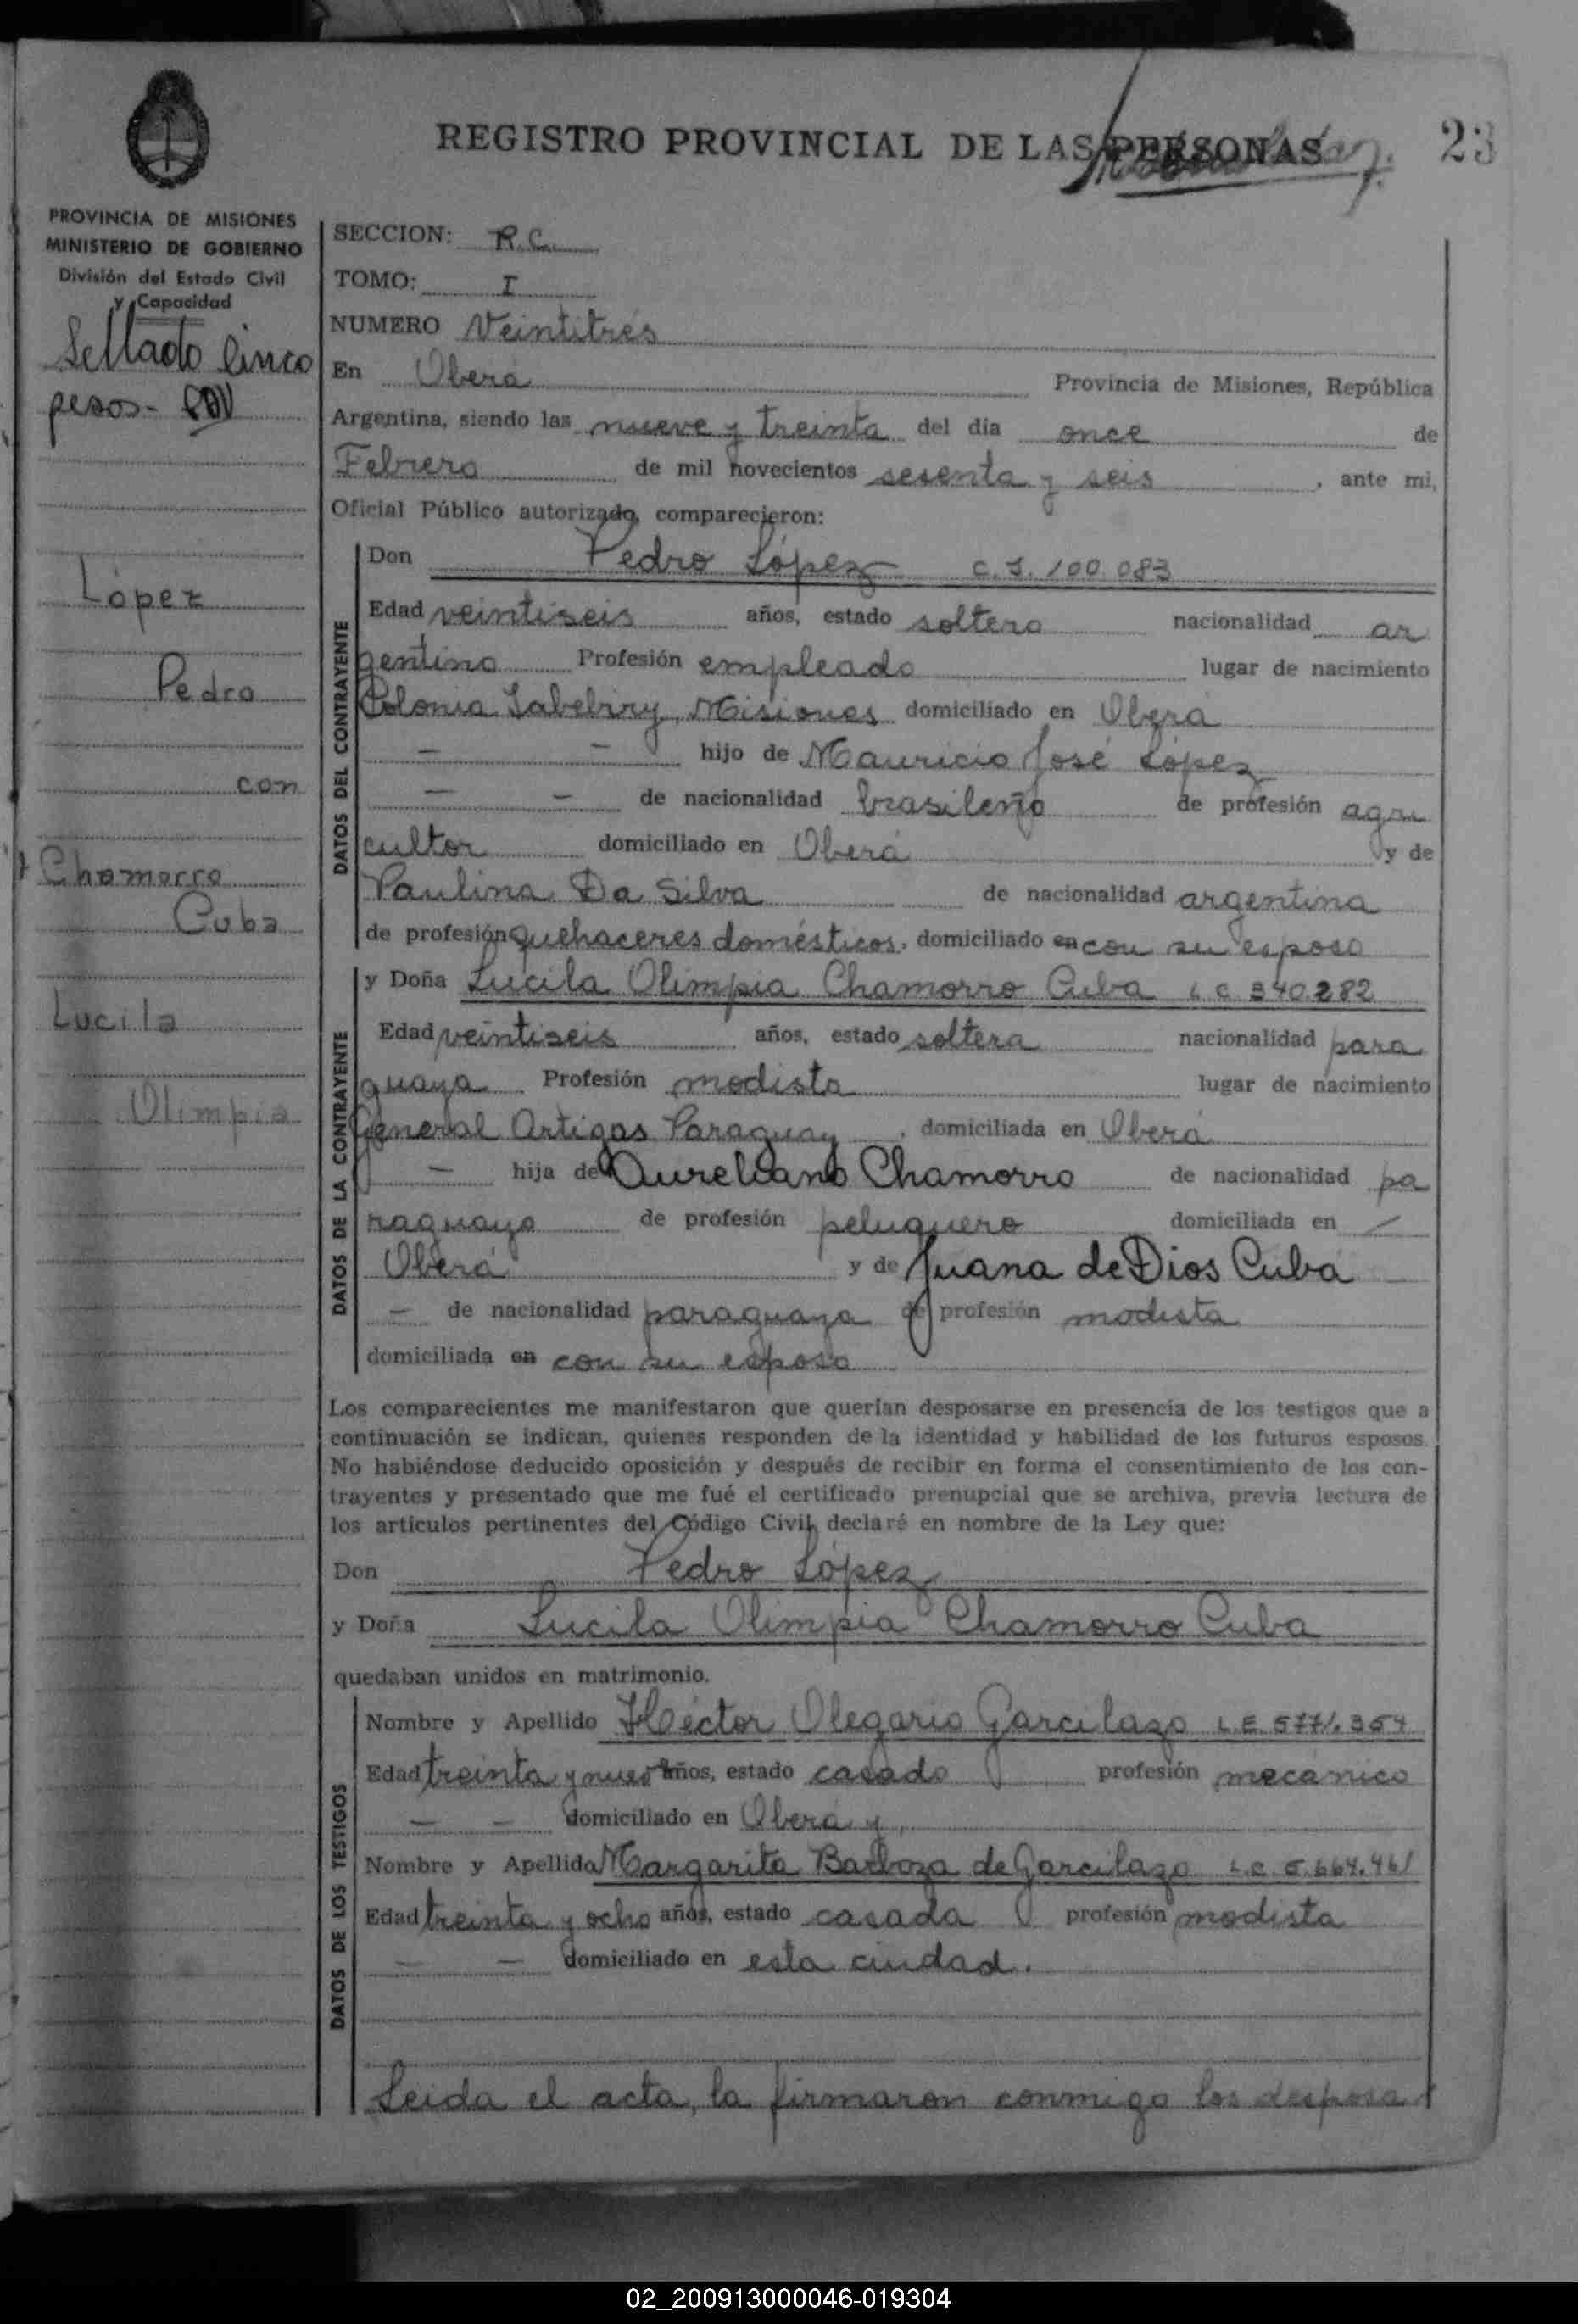 REGISTRO PROVINCIAL DE LAS PERSONAS
23
PROVINCIA DE MISIONES
MINISTERIO DE GOBIERNO
División del Estado Civil
y Capacidad
Sellado Cinco
pesos-
López
Pedro
con
Chamorro
Cuba
Lucila
Olimpia
SECCION: R.C.
TOMO: I
NUMERO Veintitres
En Oberá Provincia de Misiones, República
Argentina, siendo las nueve y treinta del día once de
Febrero de mil novecientos sesenta y seis, ante mi,
Oficial Público autorizado, comparecieron:
DATOS DEL CONTRAYENTE
Don Pedro López C.I. 100.083
Edad veintiseis años, estado soltero nacionalidad ar
gentino Profesión empleado lugar de nacimiento
Colonia Yabebiry, Misiones domiciliado en Oberá
— — hijo de Mauricio José López
— — de nacionalidad brasileño de profesión agri
cultor domiciliado en Oberá y de
Paulina Da Silva de nacionalidad argentina
de profesión quehaceres domésticos. domiciliado en con su esposo
DATOS DE LA CONTRAYENTE
y Doña Lucila Olimpia Chamorro Cuba L.C. 340.282
Edad veintiseis años, estado soltera nacionalidad para
guaya Profesión modista lugar de nacimiento
General Artigas Paraguay, domiciliada en Oberá
— hija de Aureliano Chamorro de nacionalidad pa
raguayo de profesión peluquero domiciliada en
Oberá y de Juana de Dios Cuba
— de nacionalidad paraguaya de profesión modista
domiciliada en con su esposo
Los comparecientes me manifestaron que querían desposarse en presencia de los testigos que a
continuación se indican, quienes responden de la identidad y habilidad de los futuros esposos.
No habiéndose deducido oposición y después de recibir en forma el consentimiento de los con-
trayentes y presentado que me fué el certificado prenupcial que se archiva, previa lectura de
los artículos pertinentes del Código Civil, declaré en nombre de la Ley que:
Don Pedro López
y Doña Lucila Olimpia Chamorro Cuba
quedaban unidos en matrimonio.
DATOS DE LOS TESTIGOS
Nombre y Apellido Héctor Olegario Garcilazo L.E. 5771.354
Edad treinta y nueve años, estado casado profesión mecánico
— — domiciliado en Oberá y,
Nombre y Apellido Margarita Barboza de Garcilazo L.C. 6.664.461
Edad treinta y ocho años, estado casada profesión modista
— — domiciliado en esta ciudad.
Leida el acta, la firmaron conmigo los desposa
02_200913000046-019304